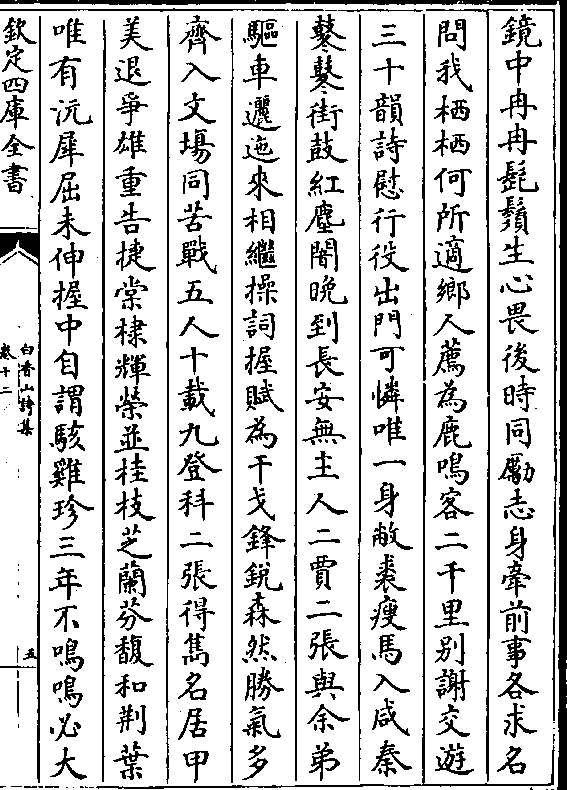 鏡中冉冉髭鬚生心畏後時同勵志身牽前事各求名
問我栖栖何所適鄉人薦為鹿鳴客二千里別謝交遊
三十韻詩慰行役出門可憐唯一身敝裘瘦馬入咸秦
鼕鼕街鼓紅塵闇晚到長安無主人二賈二張與余弟
驅車邐迤來相繼操詞握賦為干戈鋒銳森然勝氣多
齊入文場同苦戰五人十載九登科二張得雋名居甲
美退爭雄重告捷棠棣輝榮並桂枝芝蘭芬馥和荆葉
唯有沅犀屈未伸握中自謂駭雞珍三年不鳴鳴必大
欽定四庫全書
白香山詩集
卷十二
五